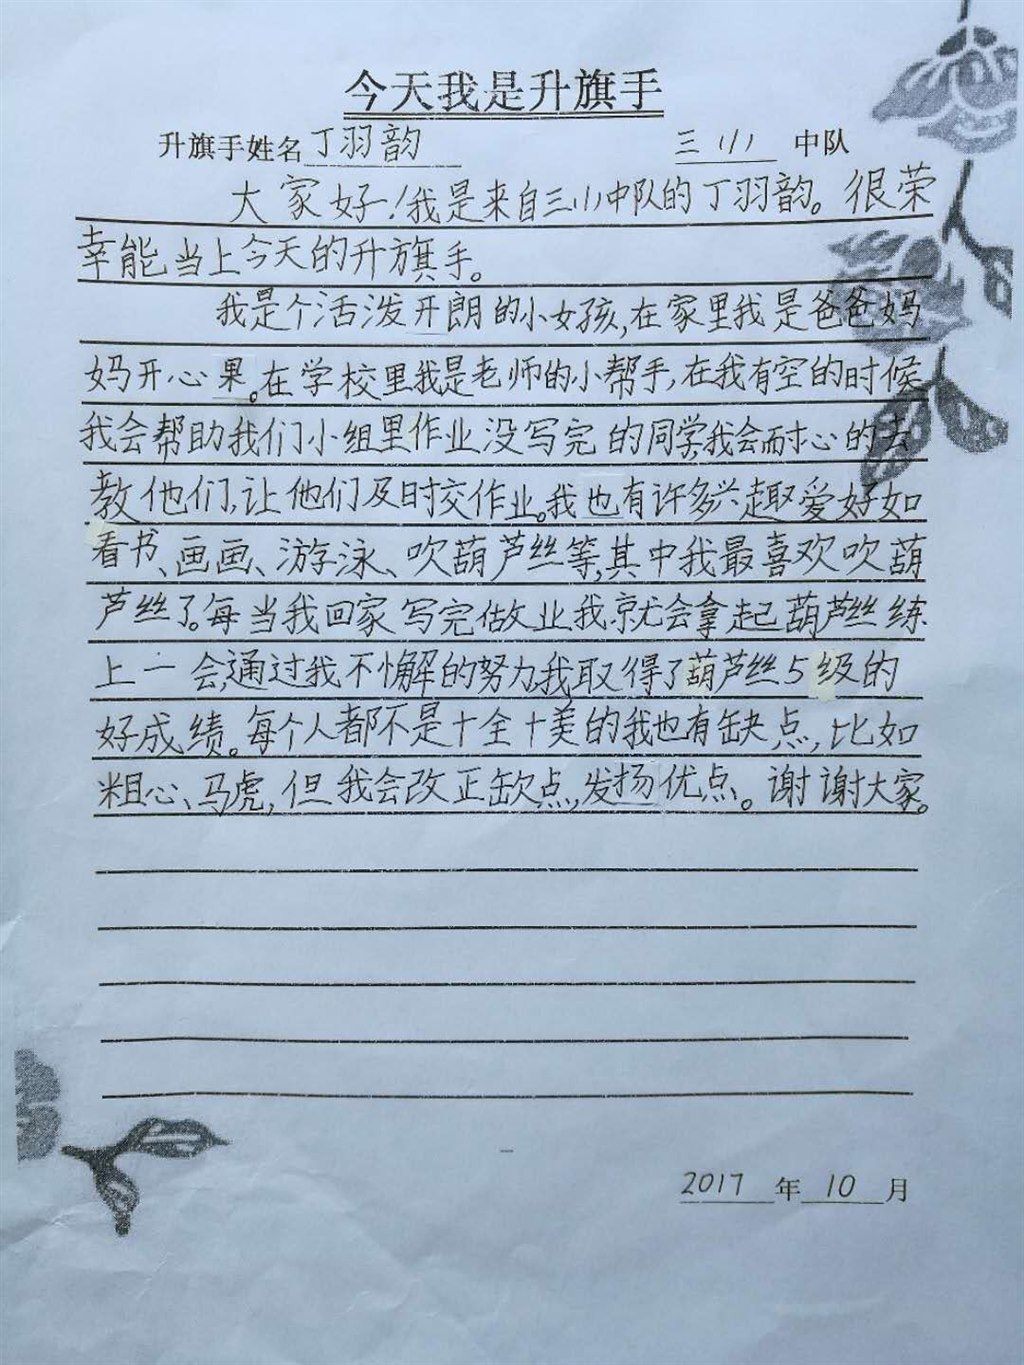 今天我是升旗手
升旗手姓名丁羽韵 三(1) 中队
大家好!我是来自三(1)中队的丁羽韵。很荣
幸能当上今天的升旗手。
我是个活泼开朗的小女孩,在家里我是爸爸妈
妈开心果。在学校里我是老师的小帮手,在我有空的时候
我会帮助我们小组里作业没写完的同学我会耐心的去
教他们,让他们及时交作业。我也有许多兴趣爱好如
看书、画画、游泳、吹葫芦丝等,其中我最喜欢吹葫
芦丝了。每当我回家写完做业我就会拿起葫芦丝练
上一会,通过我不懈的努力,我取得了葫芦丝5级的
好成绩。每个人都不是十全十美的我也有缺点,比如
粗心、马虎,但我会改正缺点,发扬优点。谢谢大家。
2017年10月